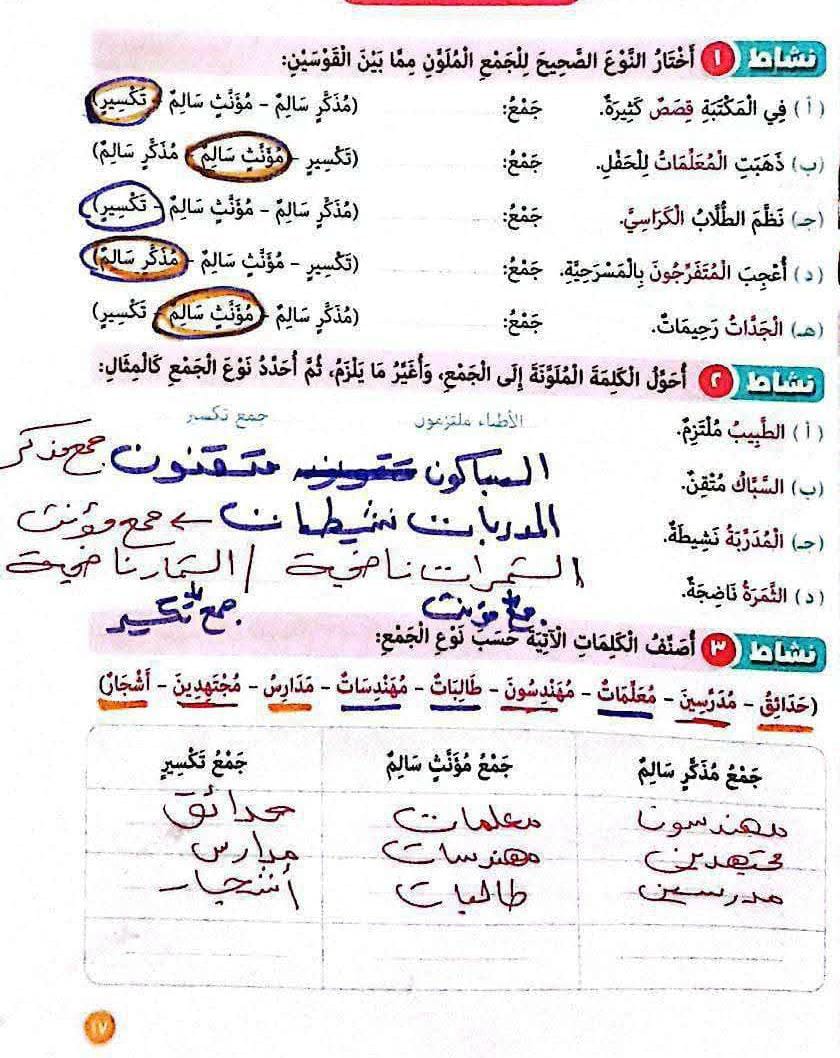 نشاط ١ أَخْتَارُ النَّوْعَ الصَّحِيحَ لِلْجَمْعِ الْمُلَوَّنِ مِمَّا بَيْنَ الْقَوْسَيْنِ:
(أ) فِي الْمَكْتَبَةِ قِصَصٌ كَثِيرَةٌ. جَمْعُ: (مُذَكَّرٍ سَالِمٌ - مُؤَنَّثٍ سَالِمٌ - تَكْسِيرٍ)
(ب) ذَهَبَتِ الْمُعَلِّمَاتُ لِلْحَفْلِ. جَمْعُ: (تَكْسِيرٍ - مُؤَنَّثٍ سَالِمٌ - مُذَكَّرٍ سَالِمٌ)
(جـ) نَظَّمَ الطُّلَّابُ الْكَرَاسِيَّ. جَمْعُ: (مُذَكَّرٍ سَالِمٌ - مُؤَنَّثٍ سَالِمٌ - تَكْسِيرٍ)
(د) أُعْجِبَ الْمُتَفَرِّجُونَ بِالْمَسْرَحِيَّةِ. جَمْعُ: (تَكْسِيرٍ - مُؤَنَّثٍ سَالِمٌ - مُذَكَّرٍ سَالِمٌ)
(هـ) الْجَدَّاتُ رَحِيمَاتٌ. جَمْعُ: (مُذَكَّرٍ سَالِمٌ - مُؤَنَّثٍ سَالِمٌ - تَكْسِيرٍ)
نشاط ٢ أُحَوِّلُ الْكَلِمَةَ الْمُلَوَّنَةَ إِلَى الْجَمْعِ، وَأُغَيِّرُ مَا يَلْزَمُ، ثُمَّ أُحَدِّدُ نَوْعَ الْجَمْعِ كَالْمِثَالِ:
(أ) الطَّبِيبُ مُلْتَزِمٌ. الأطباء ملتزمون جمع تكسير
(ب) السَّبَّاكُ مُتْقِنٌ. السباكون متقنون جمع مذكر
(جـ) الْمُدَرِّبَةُ نَشِيطَةٌ. المدربات نشيطات ← جمع مؤنث
(د) الثَّمَرَةُ نَاضِجَةٌ. الثمرات ناضجة / الثمار ناضجة
جمع مؤنث جمع تكسير
نشاط ٣ أُصَنِّفُ الْكَلِمَاتِ الْآتِيَةَ حَسَبَ نَوْعِ الْجَمْعِ:
(حَدَائِقُ - مُدَرِّسِينَ - مُعَلِّمَاتٌ - مُهَنْدِسُونَ - طَالِبَاتٌ - مُهَنْدِسَاتٌ - مَدَارِسُ - مُجْتَهِدِينَ - أَشْجَارٌ)
جَمْعُ مُذَكَّرٍ سَالِمٌ جَمْعُ مُؤَنَّثٍ سَالِمٌ جَمْعُ تَكْسِيرٍ
مهندسون معلمات حدائق
مجتهدين مهندسات مدارس
مدرسين طالبات أشجار
١٧